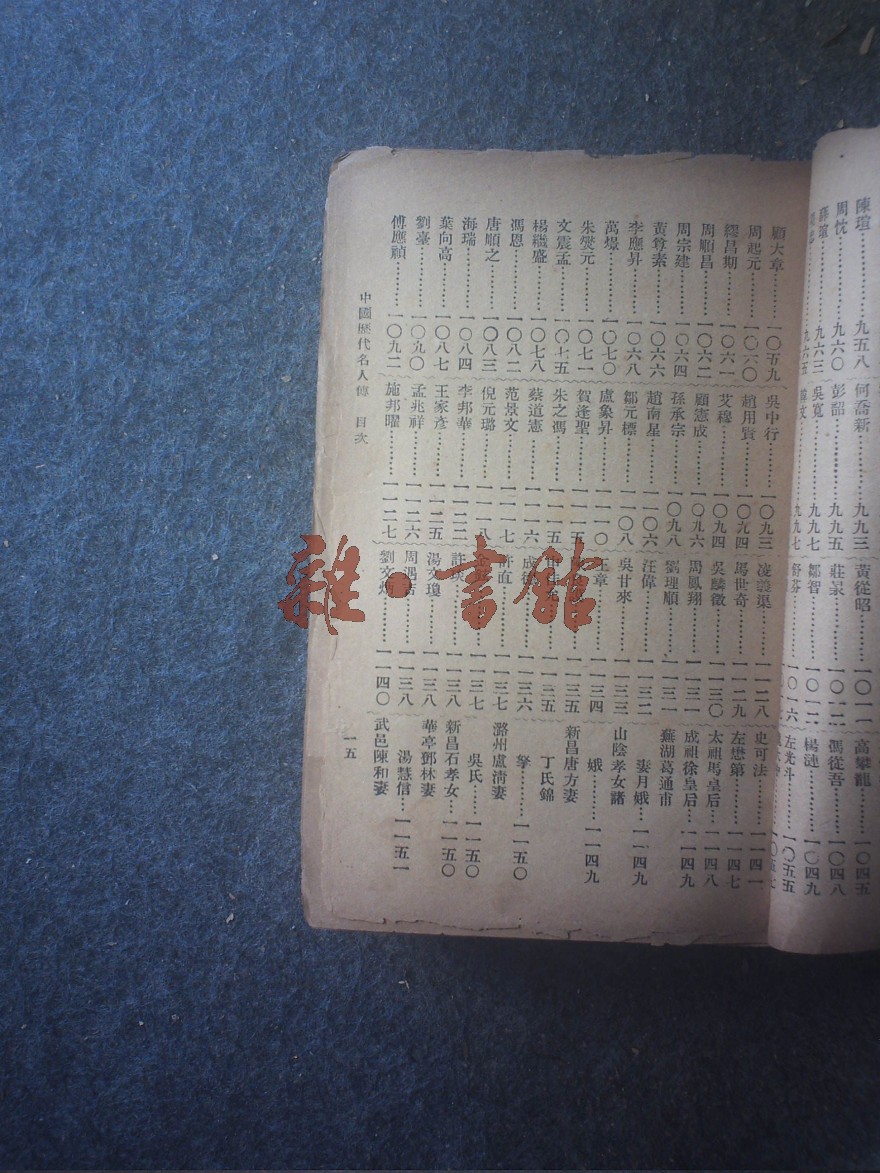 陳瑄……九五八
周忱……九六〇
薛瑄……九六三
九六五
何喬新……九九三
彭韶……九九五
吳寬……九九七
韓文……九九七
一〇一一
莊㫤……一〇一二
鄒智……一〇一二
舒芬……一〇一六
高攀龍……一〇四五
馮從吾……一〇四八
楊漣……一〇四九
左光斗……一〇五五
一〇五七
顧大章……一〇五九
周起元……一〇六〇
繆昌期……一〇六一
周順昌……一〇六二
周宗建……一〇六四
黃尊素……一〇六六
李應昇……一〇六八
萬燝……一〇七〇
朱燮元……一〇七一
文震孟……一〇七五
楊繼盛……一〇七八
馮恩……一〇八二
唐順之……一〇八三
海瑞……一〇八四
葉向高……一〇八七
劉臺……一〇九〇
傅應禎……一〇九二
吳中行……一〇九三
趙用賢……一〇九四
艾穆……一〇九四
顧憲成……一〇九六
孫承宗……一〇九八
趙南星……一一〇六
鄒元標……一一〇八
盧象昇……一一一〇
賀逢聖……一一一五
朱之馮……一一一五
蔡道憲……一一一六
范景文……一一一七
倪元璐……一一一八
李邦華……一一二二
王家彥……一一二五
孟兆祥……一一二六
施邦曜……一一二七
凌義渠……一一二八
馬世奇……一一二九
吳麟徵……一一三〇
周鳳翔……一一三一
劉理順……一一三一
汪偉……一一三二
吳甘來……一一三三
王章……一一三四
一一三五
一一三五
成德……一一三六
許直……一一三七
一一三七
許琰……一一三八
湯文瓊……一一三八
周遇吉……一一三八
劉文炳……一一四〇
史可法……一一四一
左懋第……一一四七
太祖馬皇后……一一四八
成祖徐皇后……一一四九
蕪湖葛通甫
妻月娥……一一四九
山陰孝女諸
娥……一一四九
新昌唐方妻
丁氏錦
孥……一一五〇
潞州盧清妻
吳氏……一一五〇
新昌石孝女……一一五〇
華亭鄧林妻
湯慧信……一一五一
武邑陳和妻
中國歷代名人傳　目次
一五
雜·書館